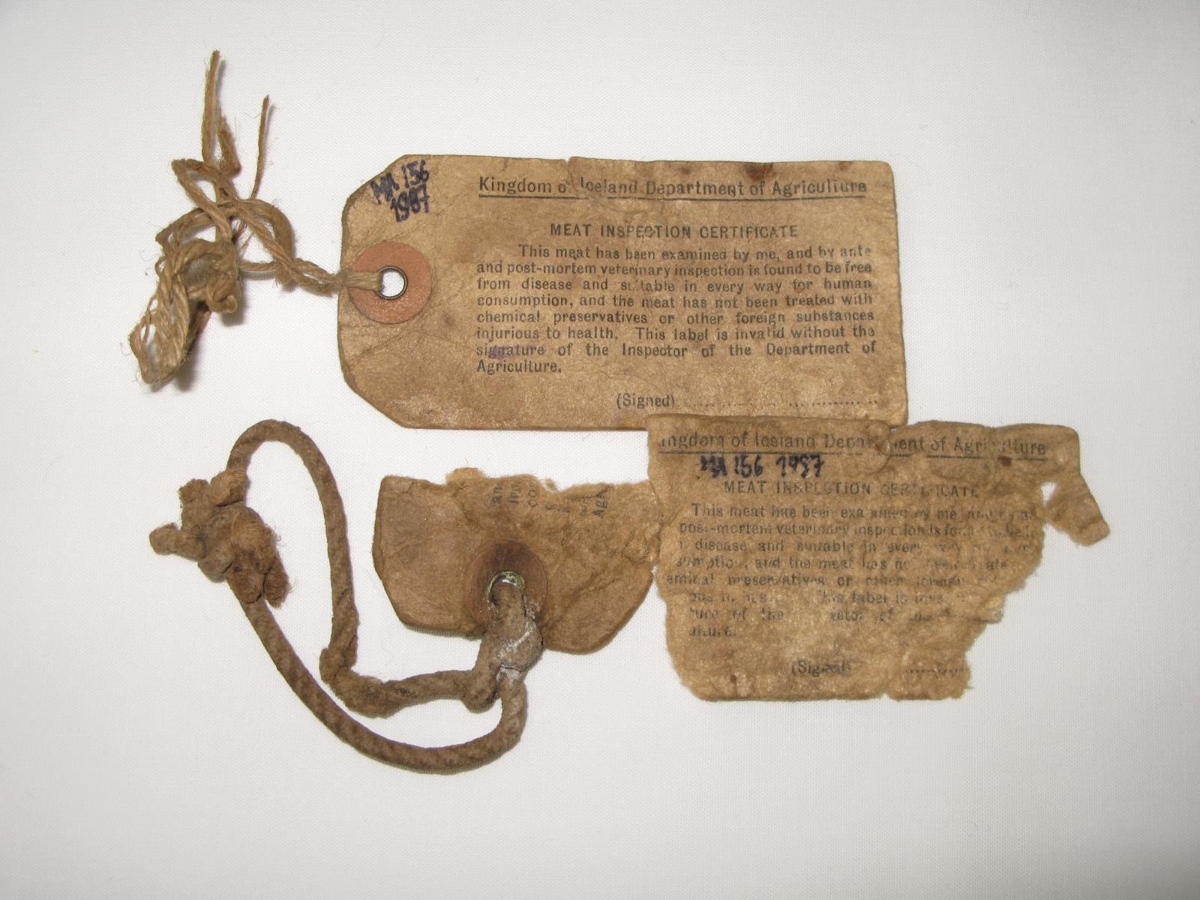 MA 156
1987
Kingdom of Iceland Department of Agriculture
MEAT INSPECTION CERTIFICATE
This meat has been examined by me, and by ante
and post-mortem veterinary inspection is found to be free
from disease and suitable in every way for human
consumption, and the meat has not been treated with
chemical preservatives or other foreign substances
injurious to health. This label is invalid without the
signature of the Inspector of the Department of
Agriculture.
(Signed)
ingdom of Iceland Department of Agriculture
MA 156 1987
MEAT INSPECTION CERTIFICATE
This meat has been examined by me,
post-mortem veterinary inspection is
disease and suitable in every
and the meat has
preservatives or other foreign
label is
of the
(Signed)
an
co
Ag